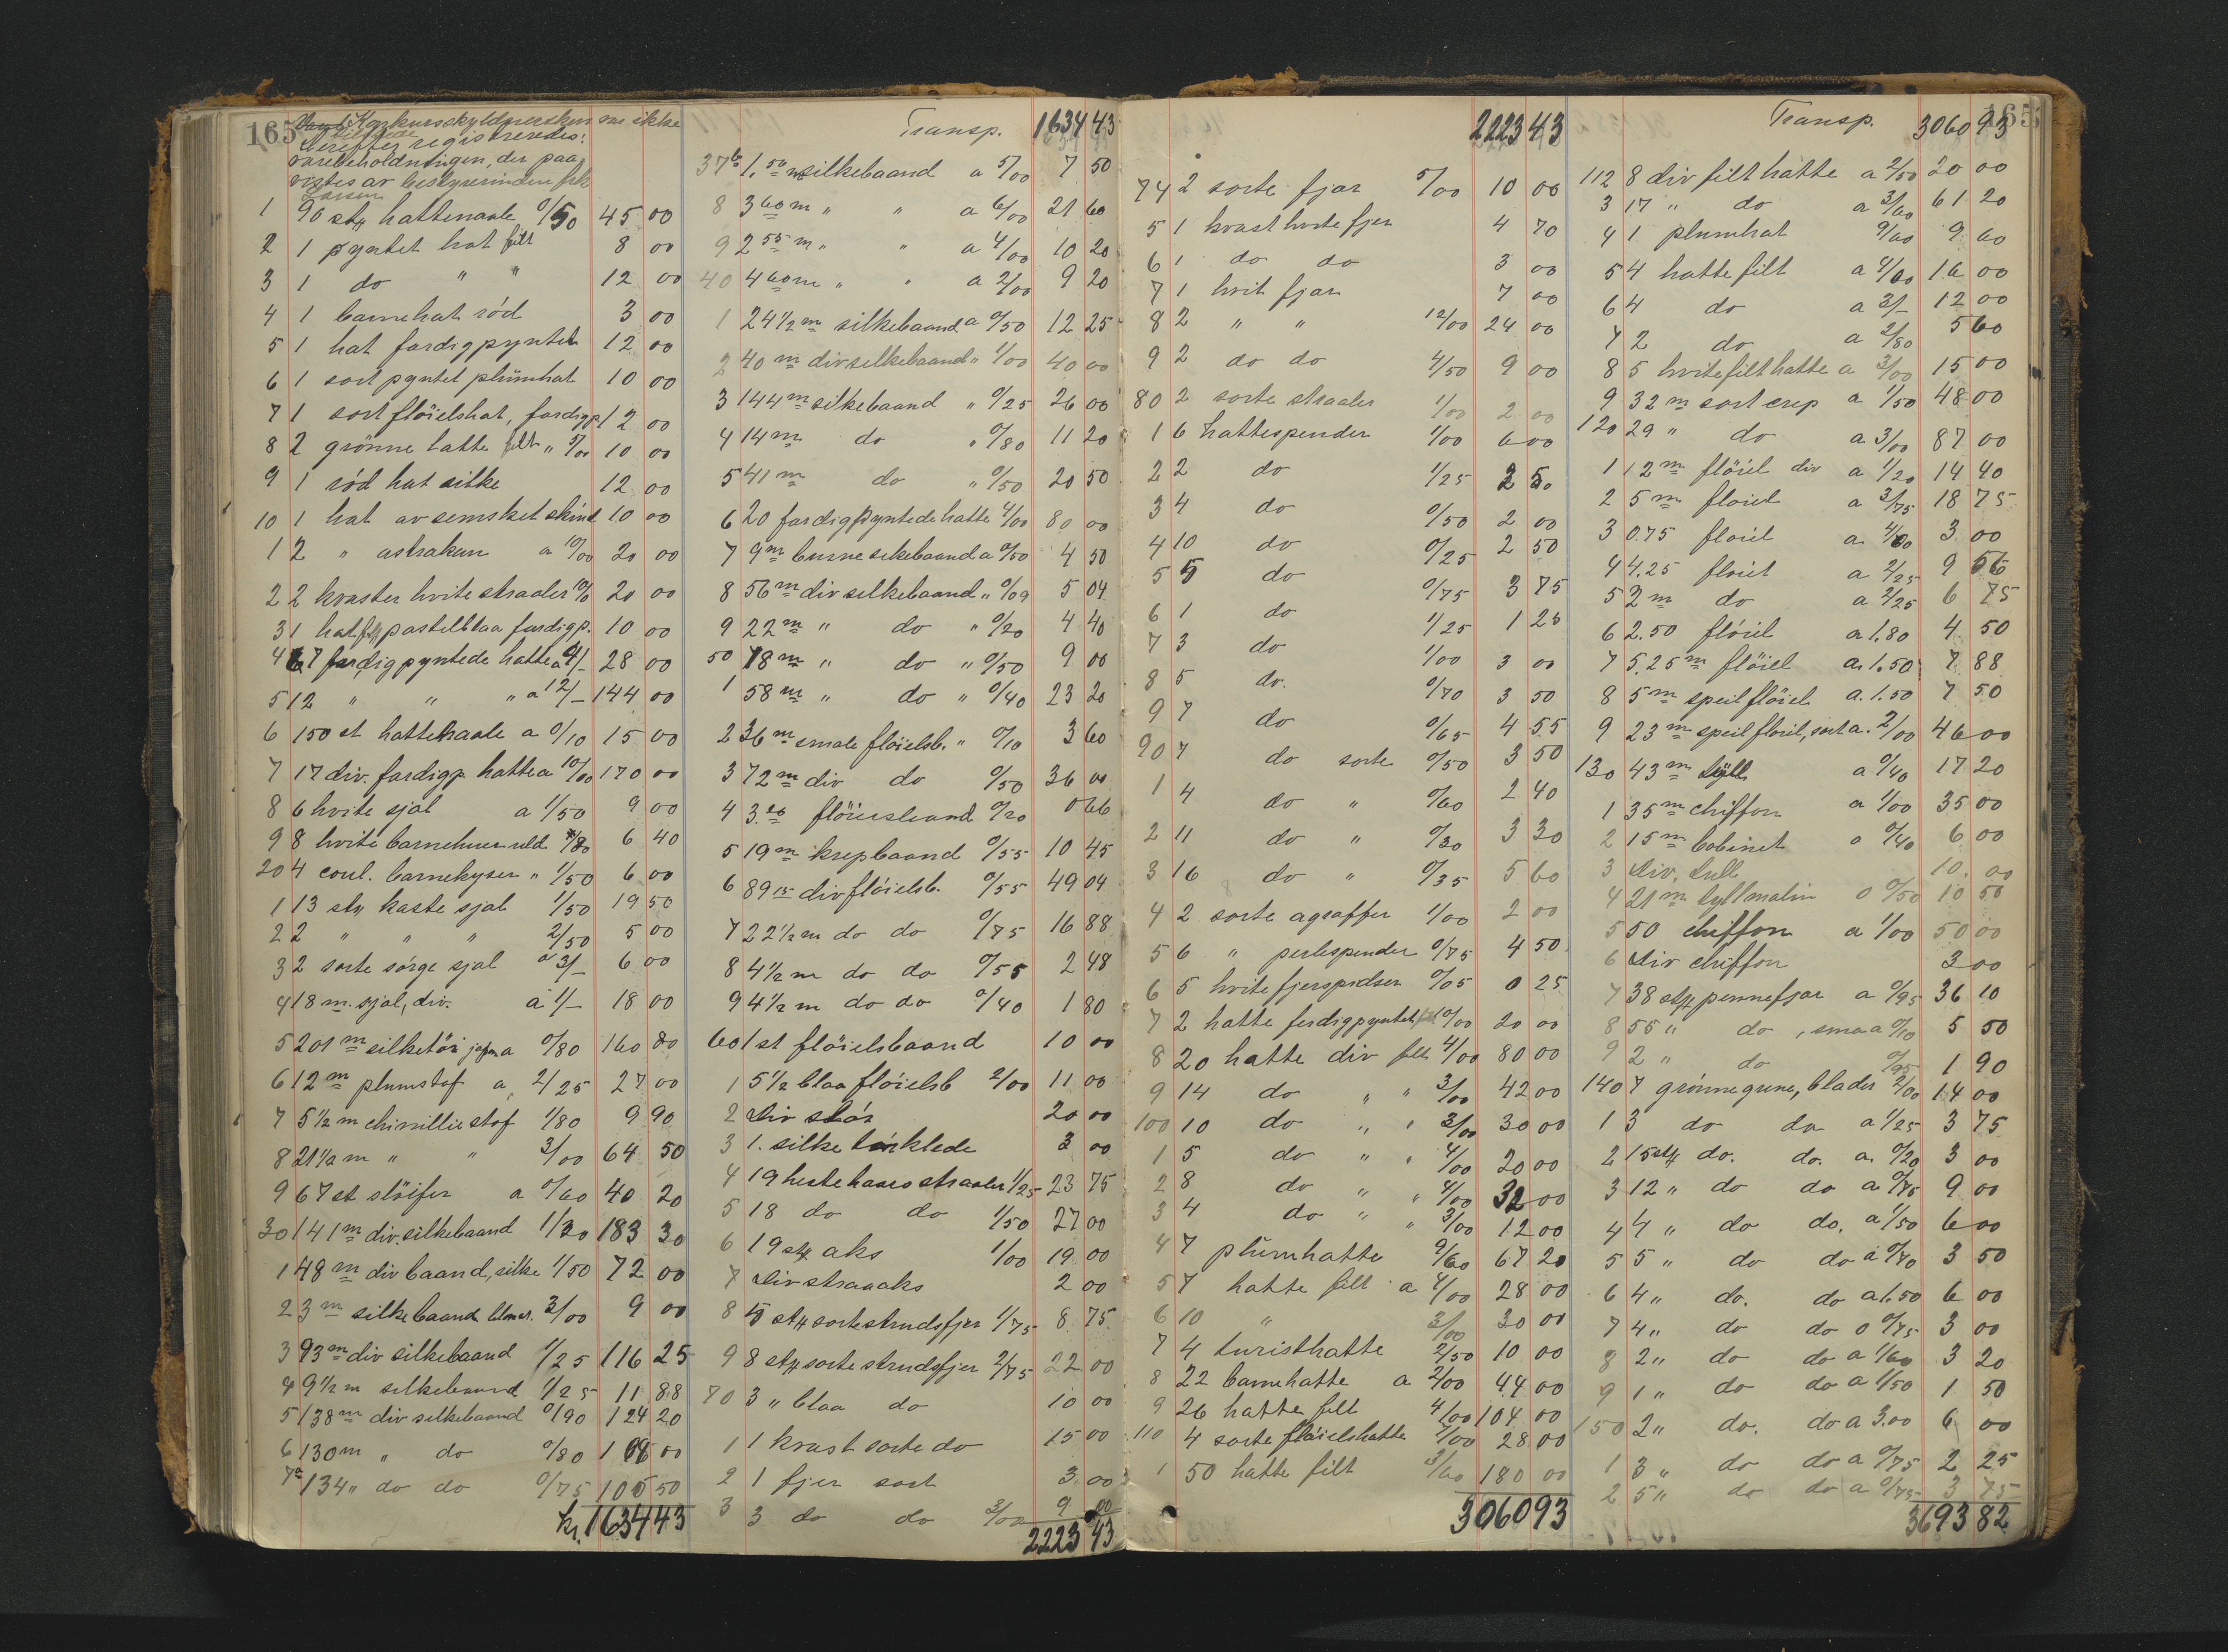 165
Konkursskyldnersken var ikke
tilstede
Derefter registreredes:
varebeholdningen, der paa-
vistes av bestyrerinden frk
Larsen
1 90 stk hattenaale 0/50 45 00
2 1 pyntet hat filt 8 00
3 1 do " " 12 00
4 1 barnehat röd 3 00
5 1 hat færdig pyntet 12 00
6 1 sort pyntet plümhat 10 00
7 1 sort flöielshat, færdigp. 12 00
8 2 grönne hatte filt " 5/00 10 00
9 1 röd hat silke 12 00
10 1 hat av semsket skind 10 00
1 2 " astrakan a 10/00 20 00
2 2 kvaster hvite straaler 10/0 20 00
3 1 hat filt pastelblaa færdigp. 10 00
4 7 færdigpyntede hatte a 4/- 28 00
5 12 " " " a 12/- 144 00
6 150 st hattenaale a 0/10 15 00
7 17 div. færdigp. hatte a 10/00 170 00
8 6 hvite sjal a 1/50 9 00
9 8 hvite barnehuer uld 0/80 6 40
20 4 coul. barnekyser " 1/50 6 00
1 13 stk kaste sjal 1/50 19 50
2 2 " " " 2/50 5 00
3 2 sorte sörge sjal a 3/- 6 00
4 18 m. sjal, div. a 1/- 18 00
5 201 m silketöi japan a 0/80 160 80
6 12 m plumstof a 2/25 27 00
7 5 1/2 m chinillie stof 1/80 9 90
8 21 1/2 m " " 3/00 64 50
9 67 st slöifer a 0/60 40 20
30 141 m div. silkebaand 1/30 183 30
1 48 m div baand, silke 1/50 72 00
2 3 m silkebaand blmst. 3/00 9 00
3 93 m div silkebaand 1/25 116 25
4 9 1/2 m silkebaand 1/25 11 88
5 138 m div silkebaand 0/90 124 20
6 130 m " do 0/80 104 00
7a 134 " do do 0/75 100 50
Kr. 1634 43
Transp. 1634 43
37b 1.50 m silkebaand a 5/00 7 50
8 3 60 m " " a 6/00 21 60
9 2 55 m " " a 4/00 10 20
40 4 60 m " " a 2/00 9 20
1 24 1/2 m silkebaand a 0/50 12 25
2 40 m div silkebaand " 1/00 40 00
3 144 m silkebaand " 0/25 26 00
4 14 m do " 0/80 11 20
5 41 m do " 0/50 20 50
6 20 færdigpyntede hatte 4/00 80 00
7 9 m brune silkebaand a 0/50 4 50
8 56 m div silkebaand " 0/09 5 04
9 22 m " do " 0/20 4 40
50 18 m " do " 0/50 9 00
1 58 m " do " 0/40 23 20
2 36 m smale flöielsb. " 0/10 3 60
3 72 m div do 0/50 36 00
4 3.20 flöielsbaand 0/20 0 66
5 19 m krepbaand 0/55 10 45
6 89 15 div flöielsb. 0/55 49 04
7 22 1/2 m do do 0/75 16 88
8 4 1/2 m do do 0/55 2 48
9 4 1/2 m do do 0/40 1 80
60 1 st flöielsbaand 10 00
1 5 1/2 blaa flöielsb 2/00 11 00
2 Div slör 20 00
3 1. silke törklede 3 00
4 19 hestehaars straaler 1/25 23 75
5 18 do do 1/50 27 00
6 19 stk aks 1/00 19 00
7 Div straaaks 2 00
8 5 stk sorte strudsfjer 1/75 8 75
9 8 stk sorte strudsfjer 2/75 22 00
70 3 " blaa do 10 00
1 1 kvast sorte do 15 00
2 1 fjer sort 3 00
3 3 do do 3/00 9 00
2223 43
2223 43
74 2 sorte fjær 5/00 10 00
5 1 kvast hvite fjer 4 70
6 1 do do 3 00
7 1 hvit fjær 7 00
8 2 " " 12/00 24 00
9 2 do do 4/50 9 00
80 2 sorte straaler 1/00 2 00
1 6 hattespender 1/00 6 00
2 2 do 1/25 2 50
3 4 do 0/50 2 00
4 10 do 0/25 2 50
5 5 do 0/75 3 75
6 1 do 1/25 1 25
7 3 do 1/00 3 00
8 5 do. 0/70 3 50
9 7 do 0/65 4 55
90 7 do sorte 0/50 3 50
1 4 do " 0/60 2 40
2 11 do " 0/30 3 30
3 16 do " 0/35 5 60
4 2 sorte agraffer 1/00 2 00
5 6 " perlespender 0/75 4 50
6 5 hvite fjerspidser 0/05 0 25
7 2 hatte ferdigpyntet filt 10/00 20 00
8 20 hatte div filt 4/00 80 00
9 14 do " " 3/00 42 00
100 10 do " " 3/00 30 00
1 5 do " " 4/00 20 00
2 8 do " " 4/00 32 00
3 4 do " " 3/00 12 00
4 7 plümhatte 9/60 67 20
5 7 hatte filt a 4/00 28 00
6 10 " 3/00 30 00
7 4 turisthatte 2/50 10 00
8 22 barnehatte a 2/00 44 00
9 26 hatte filt 4/00 104 00
110 4 sorte flöielshatte 7/00 28 00
1 50 hatte filt 3/60 180 00
3060 93
165
Transp. 3060 93
112 8 div filthatte a 2/50 20 00
3 17 " do a 3/60 61 20
4 1 plumhat 9/60 9 60
5 4 hatte filt a 4/00 16 00
6 4 do a 3/- 12 00
7 2 do a 2/80 5 60
8 5 hvite filthatte a 3/00 15 00
9 32 m sort crep a 1/50 48 00
120 29 " do a 3/00 87 00
1 12 m flöiel div a 1/20 14 40
2 5 m flöiel a 3/75 18 75
3 0.75 flöiel a 4/00 3 00
4 4.25 flöiel a 2/25 9 56
5 2 m do a 2/25 6 75
6 2.50 flöiel a 1.80 4 50
7 5.25 m flöiel a. 1.50 7 88
8 5 m speilflöiel a. 1.50 7 50
9 23 m speilflöiel, sort a. 2/00 46 00
130 43 m tüll a 0/40 17 20
1 35 m chiffon a 1/00 35 00
2 15 m bobinet a 0/40 6 00
3 Div. tull 10. 00
4 21 m tyllmalin a 0/50 10 50
5 50 chiffon a 1/00 50 00
6 Div chiffon 3 00
7 38 stk pennefjær a 0/95 36 10
8 55 " do, smaa 0/10 5 50
9 2 " do 0/95 1 90
140 7 grönne grene, blader 2/00 14 00
1 3 do do a 1/25 3 75
2 15 stk do. do. a. 0/20 3 00
3 12 " do do a 0/75 9 00
4 4 " do do. a 1/50 6 00
5 5 " do do a 0/70 3 50
6 4 " do. do a 1.50 6 00
7 4 " do do a 0/75 3 00
8 2 " do do a 1/60 3 20
9 1 " do do a 1/50 1 50
150 2 " do. do a 3.00 6 00
1 3 " do do a 0/75 2 25
2 5 " do do a 0/75 3 75
3693 82